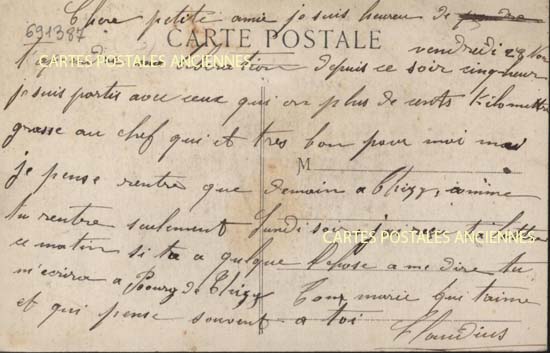 Chère petite amie je suis heureu de prendre
691387
CARTE POSTALE
vendredi 29 Nov
CARTES POSTALES ANCIENNES
depuis ce soir cinq heur
je suis partis avec ceux qui on plus de cents Kilomettre
grasse au chef qui et tres bon pour moi mai
M
je pense rentré que demain a Thizy, comme
tu rentre seulement Lundi soir
CARTES POSTALES ANCIENNES
ce matin si ta a quelque Chose a me dire tu
m'ecrira a Bourg de Thizy Ton marie qui t'aime
et qui pense souvent a toi
Claudius